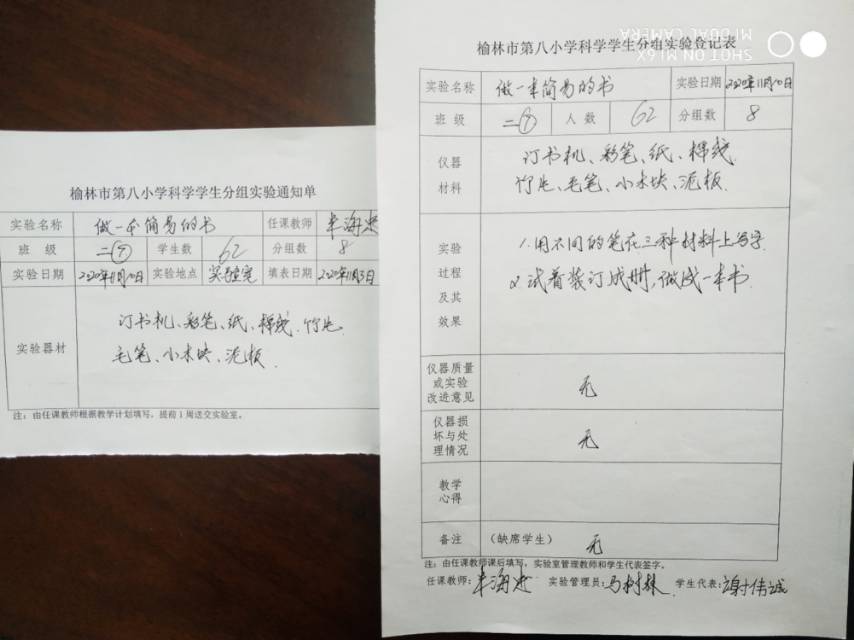 榆林市第八小学科学学生分组实验通知单
实验名称 做一本简易的书 任课教师
班 级 二⑦ 学生数 62 分组数 8
实验日期 2020年11月10日 实验地点 实验室 填表日期 2020年11月3日
实验器材 订书机、彩笔、纸、棉线、竹片、
毛笔、小木块、泥板.
注：由任课教师根据教学计划填写，提前1周送交实验室。
榆林市第八小学科学学生分组实验登记表
实验名称 做一本简易的书 实验日期 2020年11月10日
班 级 二⑦ 人 数 62 分组数 8
仪器
材料
订书机、彩笔、纸、棉线、
竹片、毛笔、小木块、泥板.
实验
过程
及其
效果
1.用不同的笔在三种材料上写字
2.试着装订成册,做成一本书.
仪器质量
或实验
改进意见
无
仪器损
坏与处
理情况
无
教学
心得
备注 （缺席学生） 无
注：由任课教师课后填写，实验室管理教师和学生代表签字。
任课教师: 实验管理员:马树林 学生代表:谢伟诚
SHOT ON MI 6X
MI DUAL CAMERA